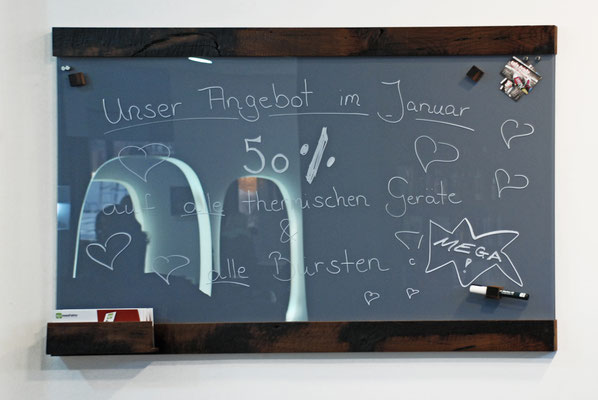 Unser Angebot im Januar
50 %
auf alle thermischen Geräte
&
alle Bürsten !
MEGA
!